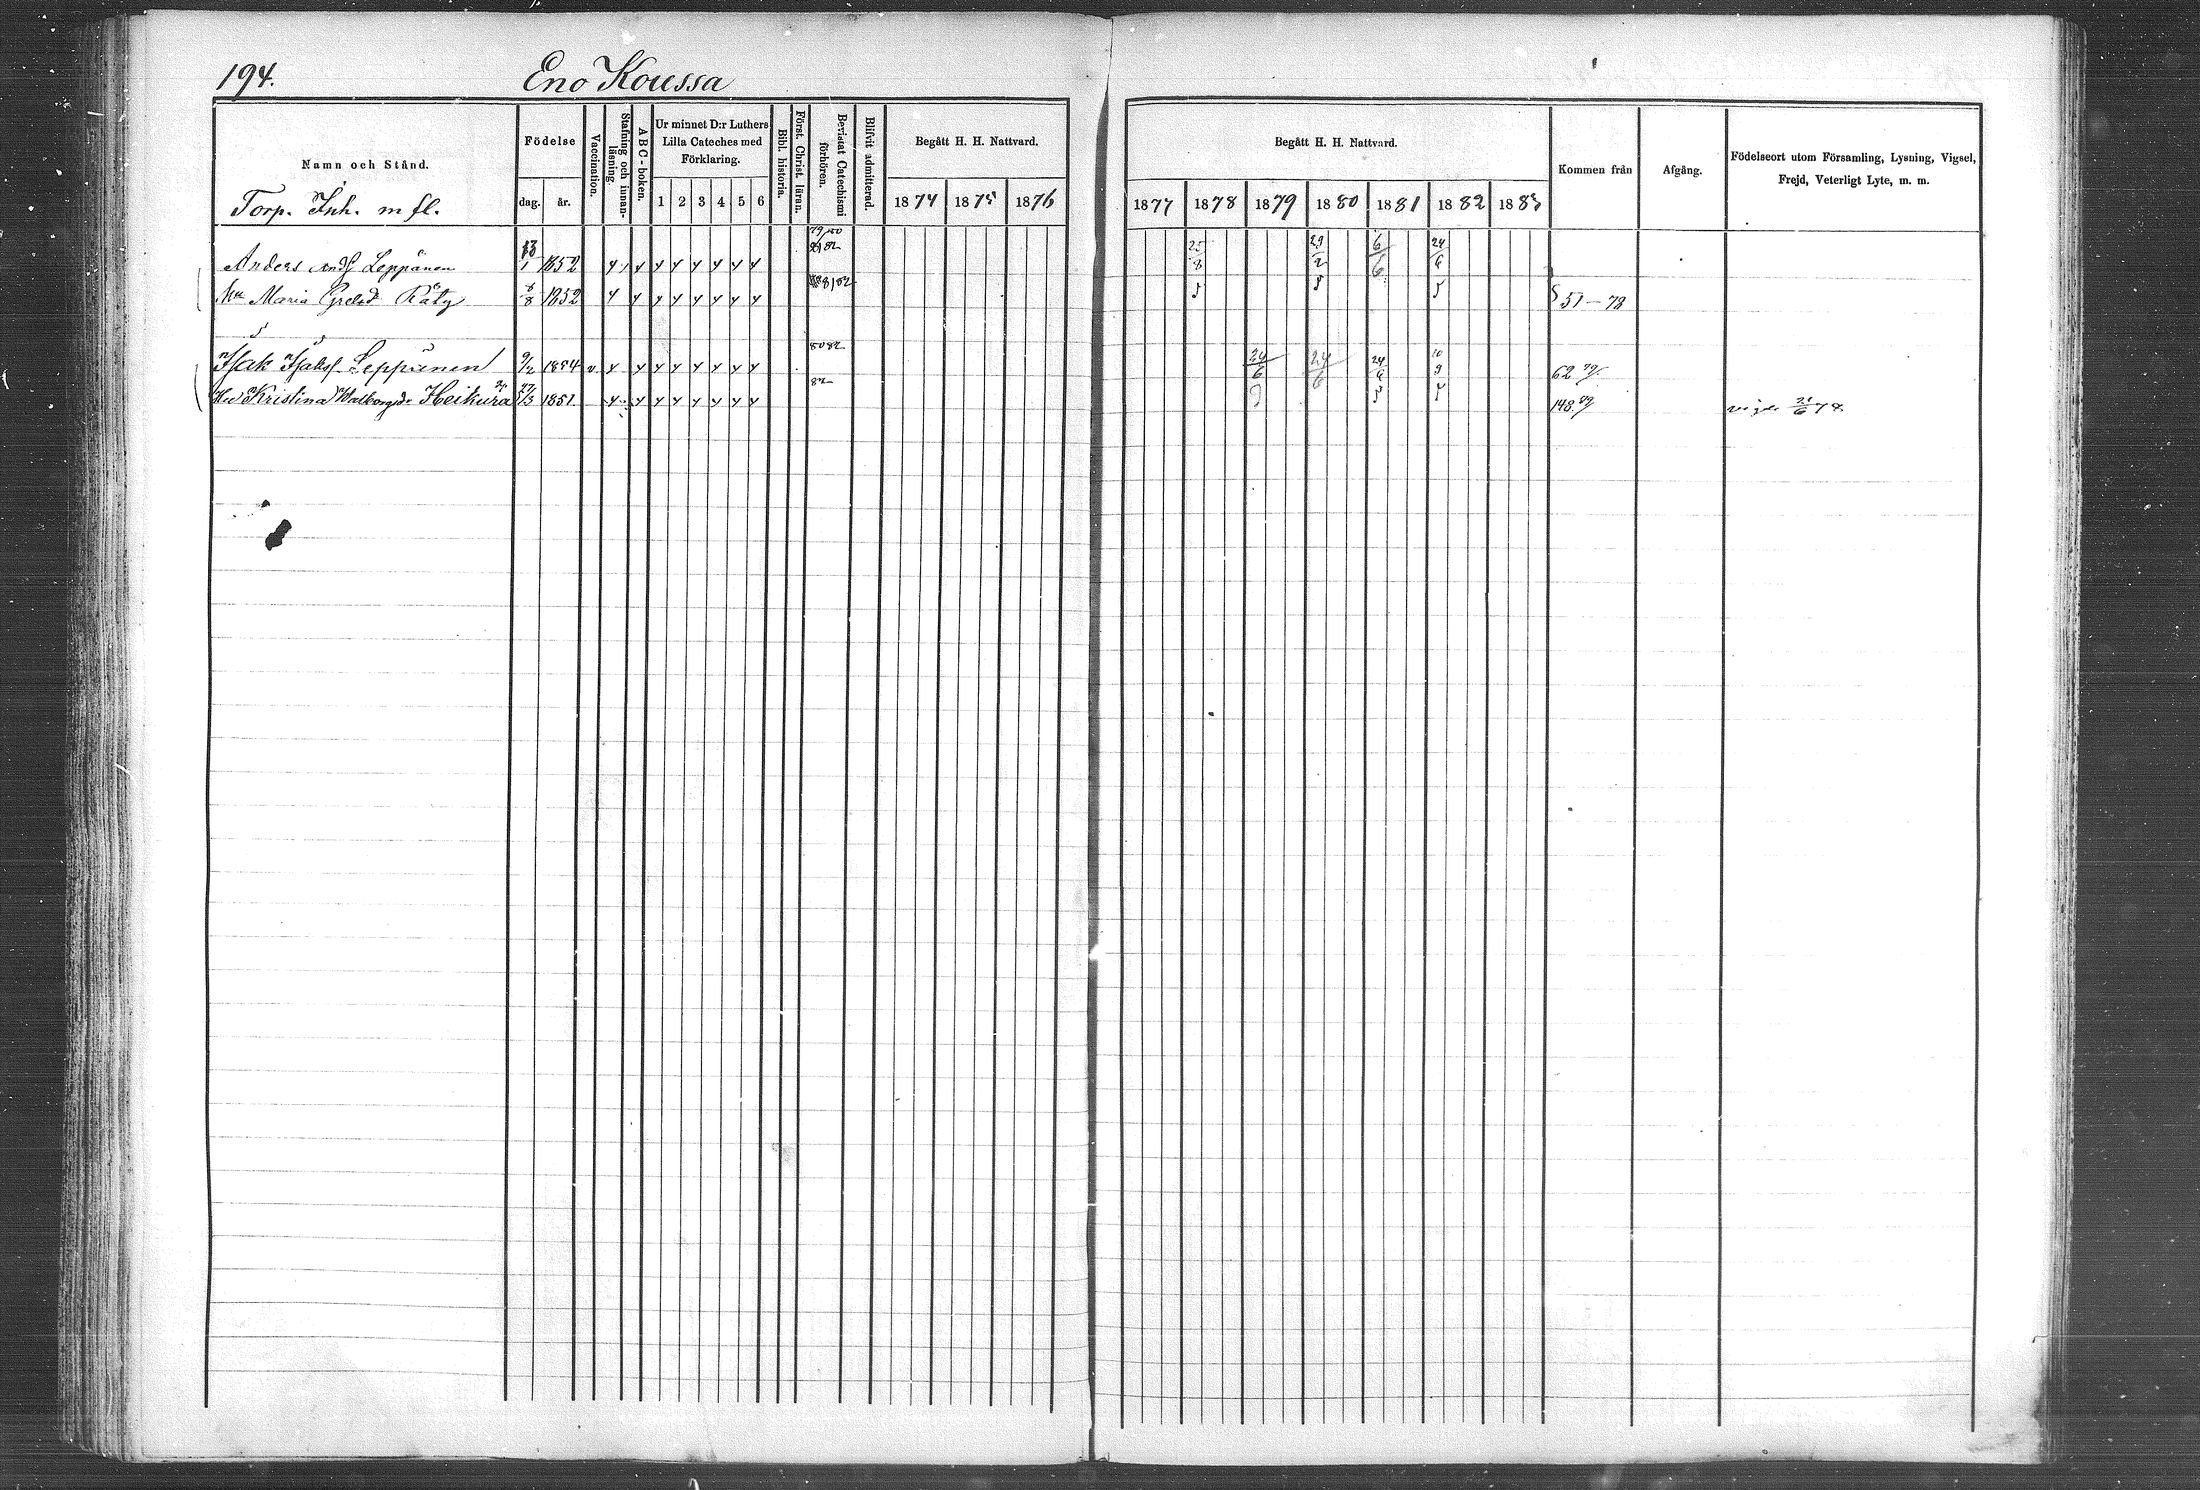 194.
Eno Koussa
Namn och Stånd.
Torp. Inh. m fl.
Födelse
dag.
år.
Vaccination.
Stafning och innan-läsning.
ABC-boken.
Ur minnet D:r Luthers
Lilla Cateches med
Förklaring.
1 2 3 4 5 6
Bibl. historia.
Först. Christ. läran.
Bevistat Catechismi förhören.
Blifvit admitterad.
Begått H. H. Nattvard.
1874 1875 1876
Begått H. H. Nattvard.
1877 1878 1879 1880 1881 1882 1883
Kommen från
Afgång.
Födelseort utom Församling, Lysning, Vigsel,
Frejd, Veterligt Lyte, m. m.
Anders Leppänen 1852 25/8 29/2 6/6 24/6
Maria Räty 8/8 1852 51-78
Isak Isaks. Leppänen 9/2 1854 v 80 82 24/6 24/6 24/6 10/9 62
Hu Kristina Walborgsdr Heikura 27/3 1851 82 148 79 vigde 78.